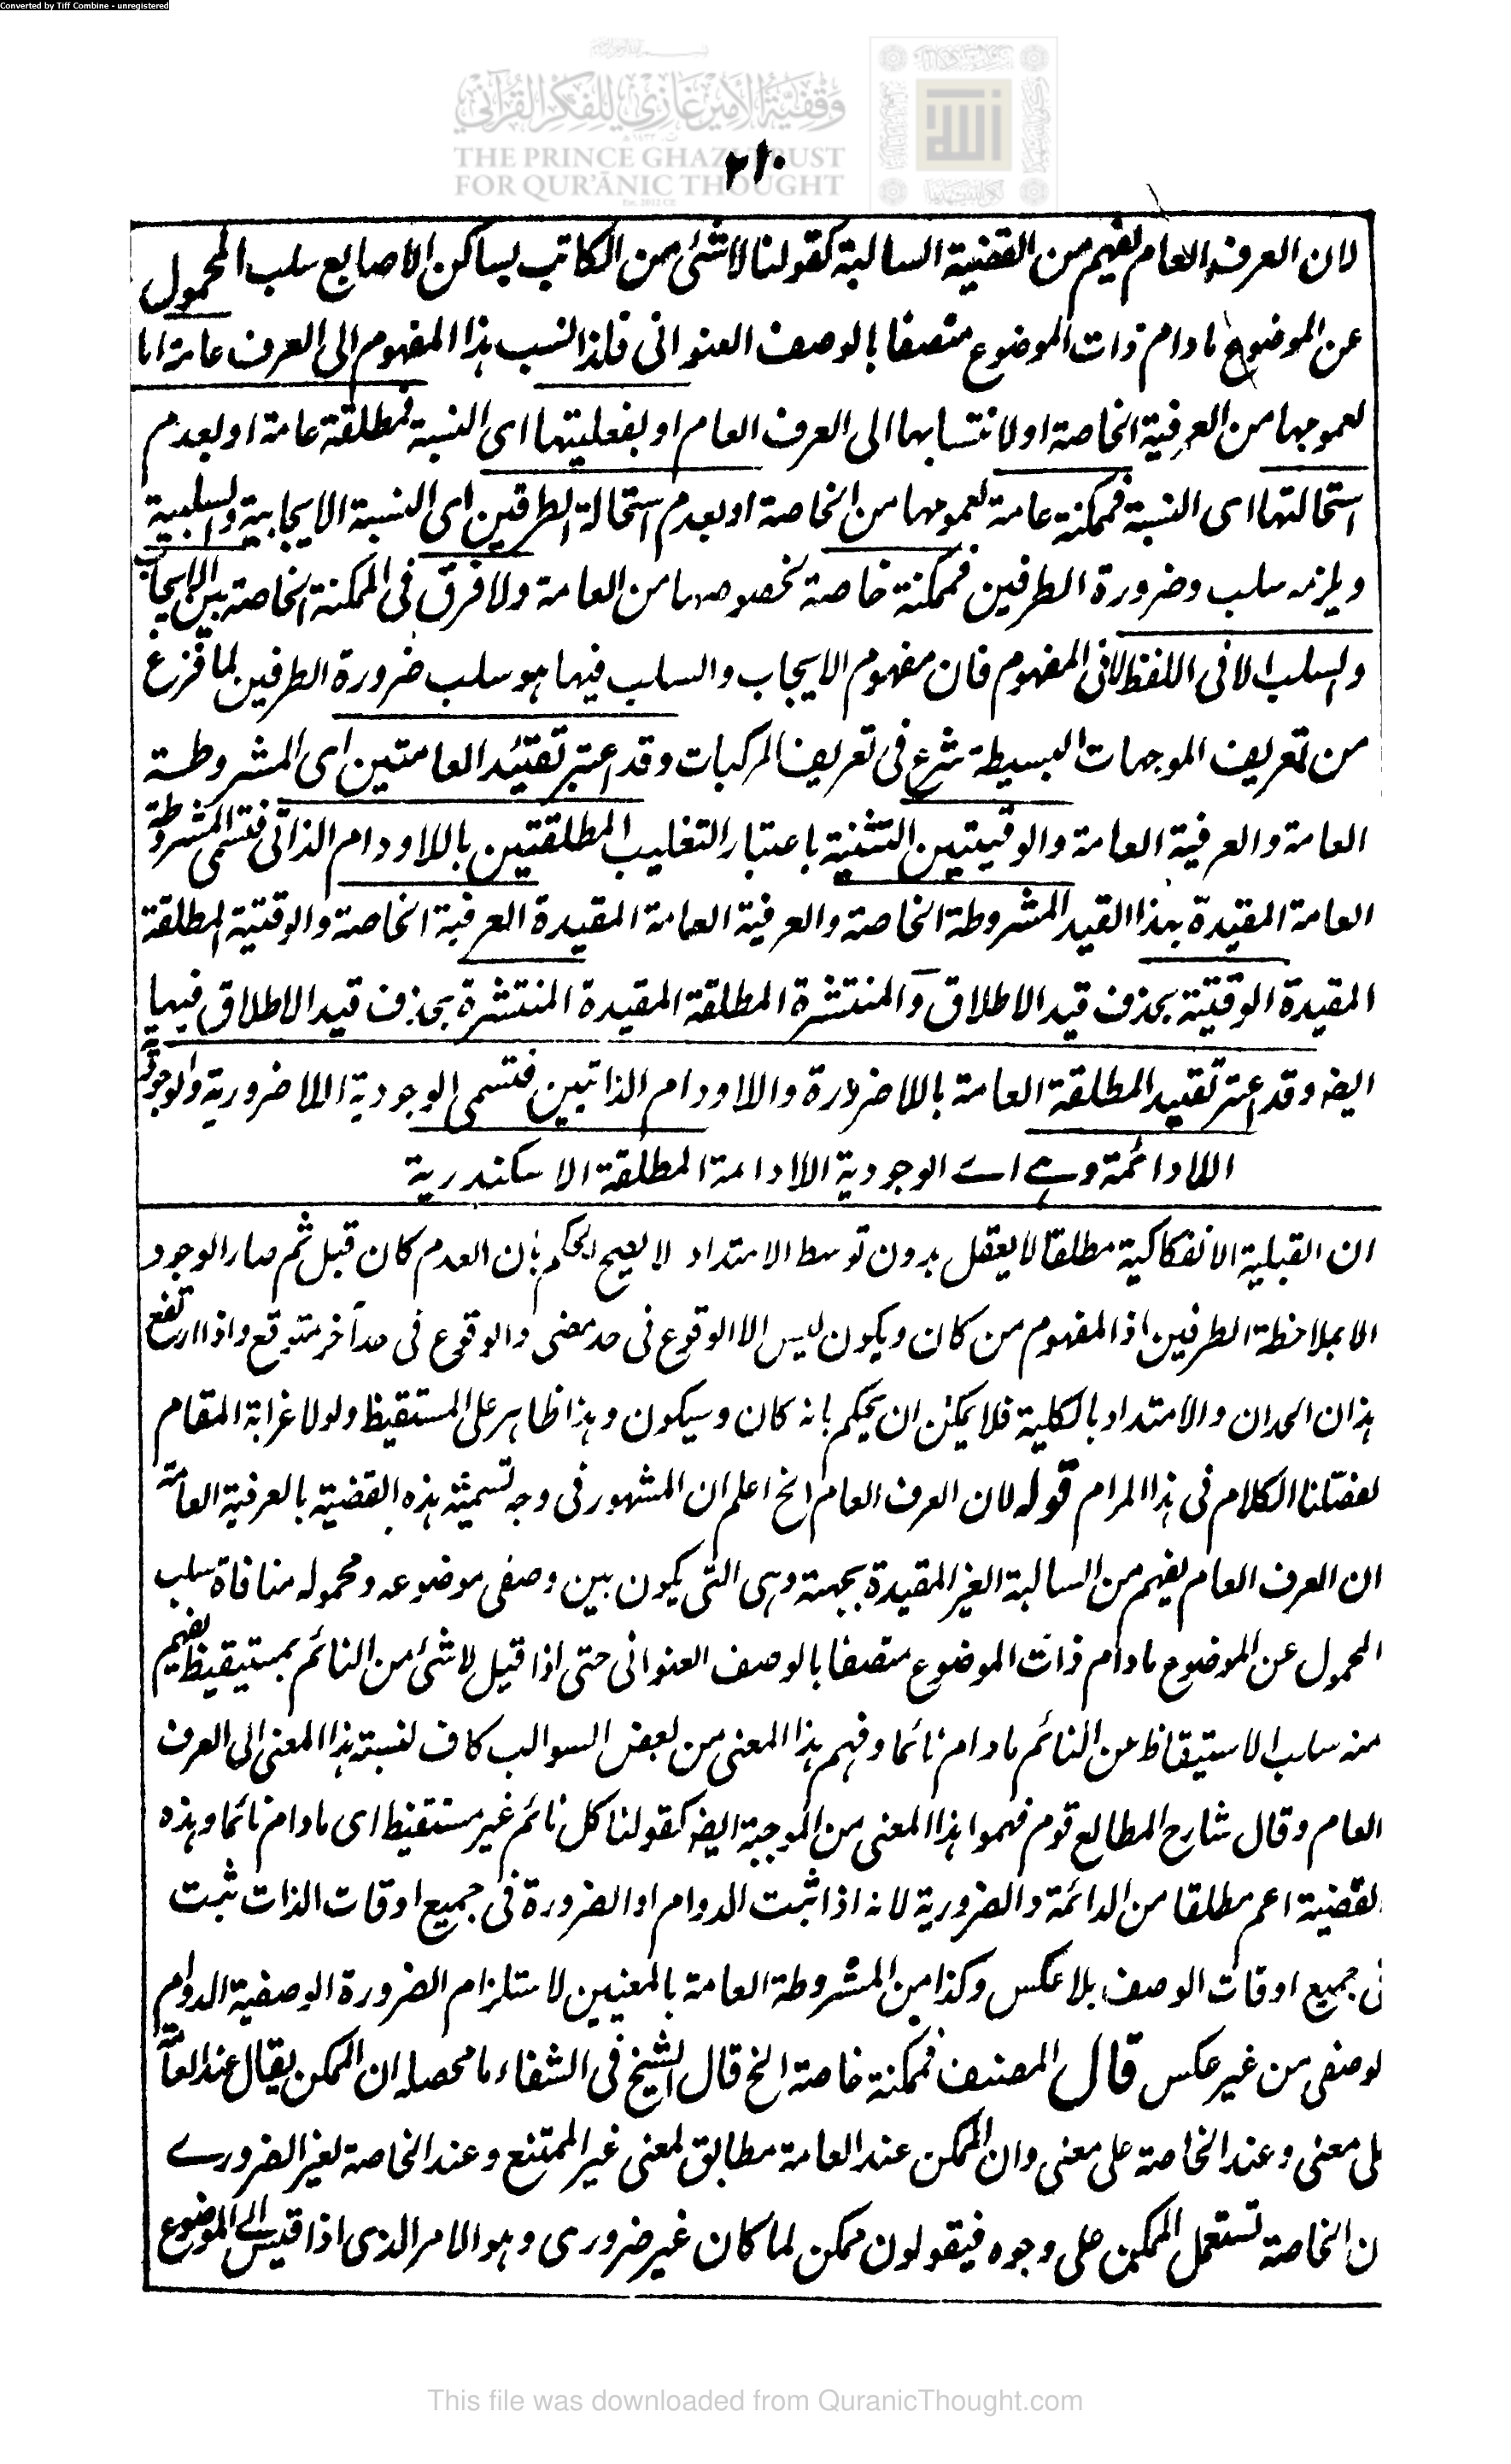 Converted by Tiff Combine - unregistered
وقفية الأمير غازي للفكر القرآني
THE PRINCE GHAZI TRUST
FOR QUR'ĀNIC THOUGHT
٢١٠
لان العرف العام يفهم من القضية السالبة كقولنا لا شئ من الكاتب بساكن الاصابع سلب المحمول
عن الموضوع ما دام ذات الموضوع متصفا بالوصف العنوانى فلذا نسب هذا المفهوم الى العرف عامة اما
لعمومها من العرفية الخاصة او لانتسابها الى العرف العام او بفعليتها اى النسبة فمطلقة عامة او بعدم
استحالتها اى النسبة فممكنة عامة لعمومها من الخاصة او بعدم استحالة الطرفين اى النسبة الايجابية والسلبية
ويلزمه سلب وضرورة الطرفين فممكنة خاصة لخصوصها من العامة ولا فرق فى الممكنة الخاصة بين الايجاب
والسلب الا فى اللفظ لا فى المفهوم فان مفهوم الايجاب والسلب فيها هو سلب ضرورة الطرفين لما فرغ
من تعريف الموجهات البسيطة شرع فى تعريف المركبات وقد اعتبر تقييد العامتين اى المشروطة
العامة والعرفية العامة والوقتيتين التثنية باعتبار التغليب المطلقتين باللادوام الذاتى فتسمى المشروطة
العامة المقيدة بهذا القيد المشروطة الخاصة والعرفية العامة المقيدة العرفية الخاصة والوقتية المطلقة
المقيدة الوقتية بحذف قيد الاطلاق والمنتشرة المطلقة المقيدة المنتشرة بحذف قيد الاطلاق فيها
ايضا وقد اعتبر تقييد المطلقة العامة باللاضرورة واللادوام الذاتيين فتسمى الوجودية اللاضرورية والوجودية
اللادائمة وهي اے الوجودية اللادائمة المطلقة الاسكندرية
ان القبلية الانفكاكية مطلقا لا يعقل بدون توسط الامتداد لا يصح الحكم بان العدم كان قبل ثم صار الوجود
الا بملاحظة الطرفين اذ المفهوم من كان ويكون ليس الا الوقوع فى حد مضى والوقوع فى حد آخر متوقع واذا ارتفع
هذان الحدان والامتداد بالكلية فلا يمكن ان يحكم بانه كان وسيكون وهذا ظاهر على المستقيظ ولولا غرابة المقام
لفصلنا الكلام فى هذا المرام قوله لان العرف العام الخ اعلم ان المشهور فى وجه تسمية هذه القضية بالعرفية العامة
ان العرف العام يفهم من السالبة الغير المقيدة بجهة وهى التى يكون بين وصفى موضوعه ومحموله منافاة سلب
المحمول عن الموضوع ما دام ذات الموضوع متصفا بالوصف العنوانى حتى اذا قيل لا شئ من النائم بمستيقظ يفهم
منه سلب الاستيقاظ عن النائم ما دام نائما وفهم هذا المعنى من بعض السوالب كاف لنسبة هذا المعنى الى العرف
العام وقال شارح المطالع قوم فهموا هذا المعنى من الموجبة ايضا كقولنا كل نائم غير مستقيظ اى ما دام نائما وهذه
لقضية اعم مطلقا من الدائمة والضرورية لانه اذا ثبت الدوام او الضرورة فى جميع اوقات الذات ثبت
فى جميع اوقات الوصف بلا عكس وكذا من المشروطة العامة بالمعنيين لاستلزام الضرورة الوصفية الدوام
لوصفى من غير عكس قال المصنف فممكنة خاصة الخ قال الشيخ فى الشفاء ما محصله ان الممكن يقال عند العامة
لى معنى وعند الخاصة على معنى وان الممكن عند العامة مطابق لمعنى غير الممتنع وعند الخاصة لغير الضرورے
ن الخاصة تستعمل الممكن على وجوه فيقولون ممكن لما كان غير ضرورى وهو الامر الذى اذا قيس الى الموضوع
This file was downloaded from QuranicThought.com